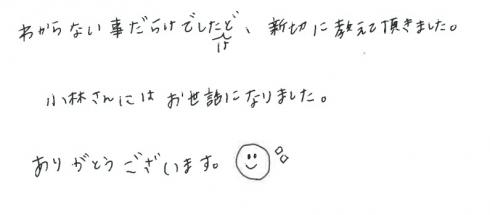 わからない事だらけでしたけど、新切に教えて頂きました。
小林さんにはお世話になりました。
ありがとうございます。